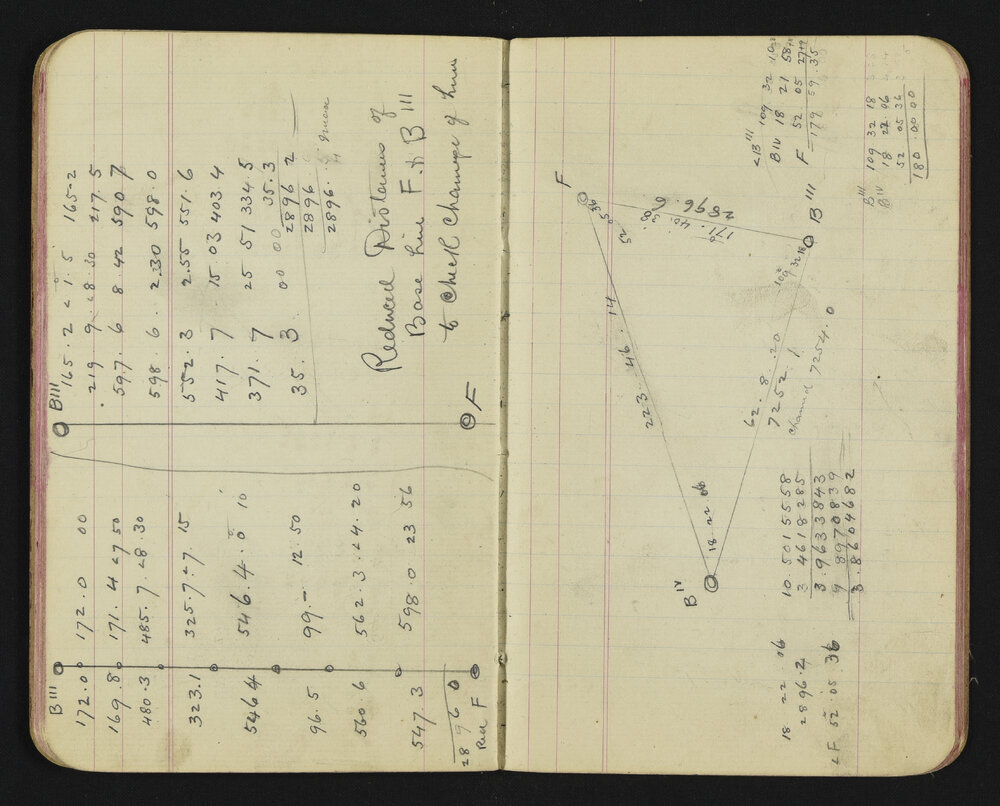 B III
165.2 < 1.5 165.2
219 9 <8.30 217.5
597.6 8.42 590 7
598 6. 2.30 598.0
552.3 2.55 551.6
417.7 15.03 403 4
371.7 25 51 334.5
35.3 00 00 35.3
2896 2
2896
2896.
F
Reduced Distances of
Base Line F. to B III
to Check Chainage of Lines
B III
172.0 172.0 00
169.8 171.4 <7 50
480.3 485.7.<8.30
323.1 325.7.<7 15
546 4 546.4.0 10
96.5 99.- 12.50
560 6 562.3.<4.20
547.3 598.0 23 56
28 96 0
F
<B III 109 32 10
B IV 18 21 58
F 52 05 27
= 179 59.35
B III 109 32 18
B IV 18 22 06
52 05 36
180.00 00
F
52 5 36
2896.6
171.40.30
B III
109 32 18
223.46.14
62.8.20
7252.1
chained 7254.0
18.22 06
B IV
18 22 06 10.5015558
2896.2 3 4618285
3.9633843
< F 52.05.36 9 8970839
3.8604682